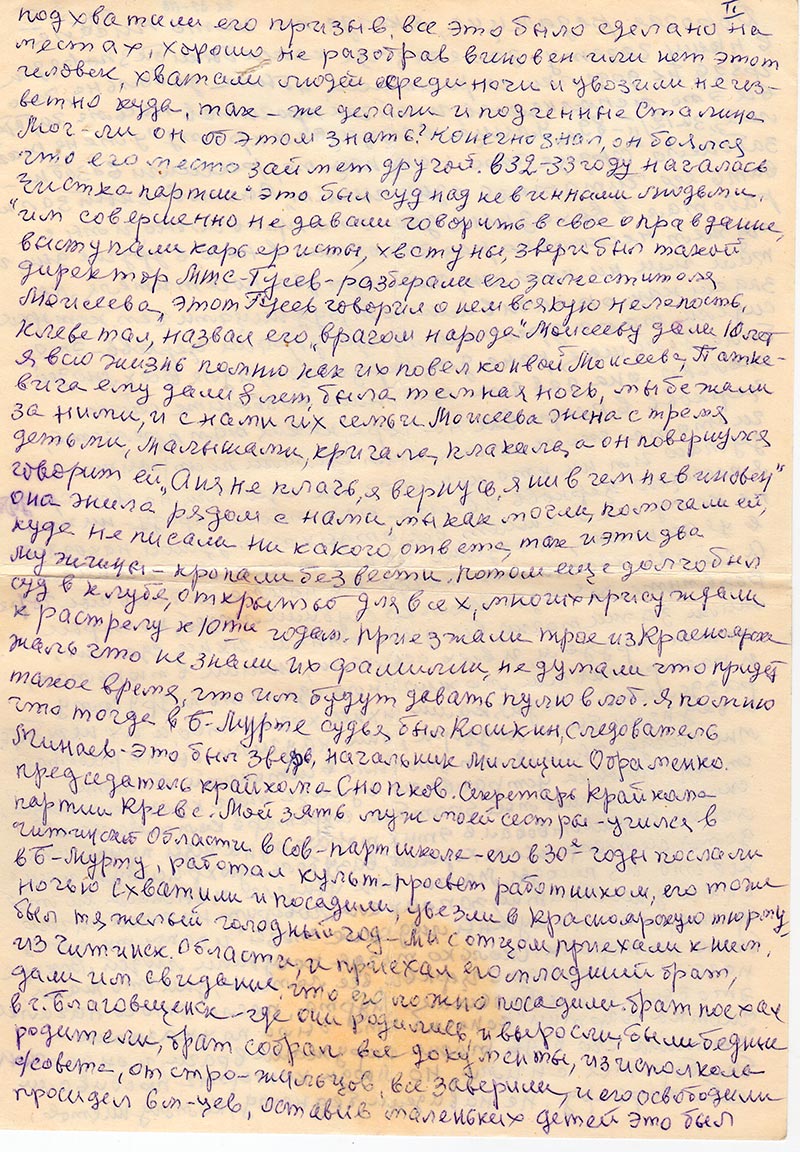 II
подхватили его призыв, все это было сделано на
местах, хорошо не разобрав виновен или нет этот
человек, хватали людей среди ночи и увозили не из-
вестно куда, так-же делали и подченные Сталина
Мог-ли он об этом знать? Конечно знал, он боялся
что его место займет другой. в 32-33 году началась
"Чистка партии" это был суд над невинными людьми,
им совершенно не давали говорить в свое оправдание,
выступали карьеристы, хвстуны, звери был такой
директор Мтс-Гусев-разберали его заместителя
Моисеева, этот Гусев говорил о нем всякую нелепость,
клеветал, назвал его "врагом народа" Моисееву дали 10 лет
я всю жизнь помню как их повел конвой Моисеева, Патке-
вича ему дали 8 лет, была темная ночь, мы бежали
за ними, и с нами их семьи Моисеева жена с тремя
детьми, малышами, кричала, плакала, а он повернулся
говорит ей "Аня не плачь, я вернусь, я ни в чем не виновен"
она жила рядом с нами, мы как могли, помогали ей,
куда не писала ни какого ответа, так и эти два
мужчины-пропали без вести. Потом еще долго был
суд в клубе, открытый для всех, многих присуждали
к растрелу к 10ти годам. приезжали трое из Красноярска
жаль что не знали их фамилии, не думали что придет
такое время, что им будут давать пулю в лоб. Я помню
что тогда в Б-Мурте судья был Кошкин, следователь
Минаев-это был зверь, начальник милиции Обраменко.
председатель крайкома Снопков. Секретарь Крайкома
партии Кревс. Мой зять муж моей сестры-учился в
Читинской Области в Сов-партшколе-его в 30е годы послали
в Б-Мурту, работал культ-просвет работником, его тоже
ночью схватили и посадили, увезли в Красноярскую тюрьму,
был тяжелый голодный год-мы с отцом приехали к ним,
из Читинск. Области, и приехал его младший брат,
дали им свидание, что его ложно посадили. брат поехал
в г. Благовещенск-где они родились, и выросли, были бедные
родители, брат собрал все документы, из исполкома
с/совета, от старо-жильцов, все заверили, и его освободили
просидел 6 м-цев, оставив маленьких детей это был